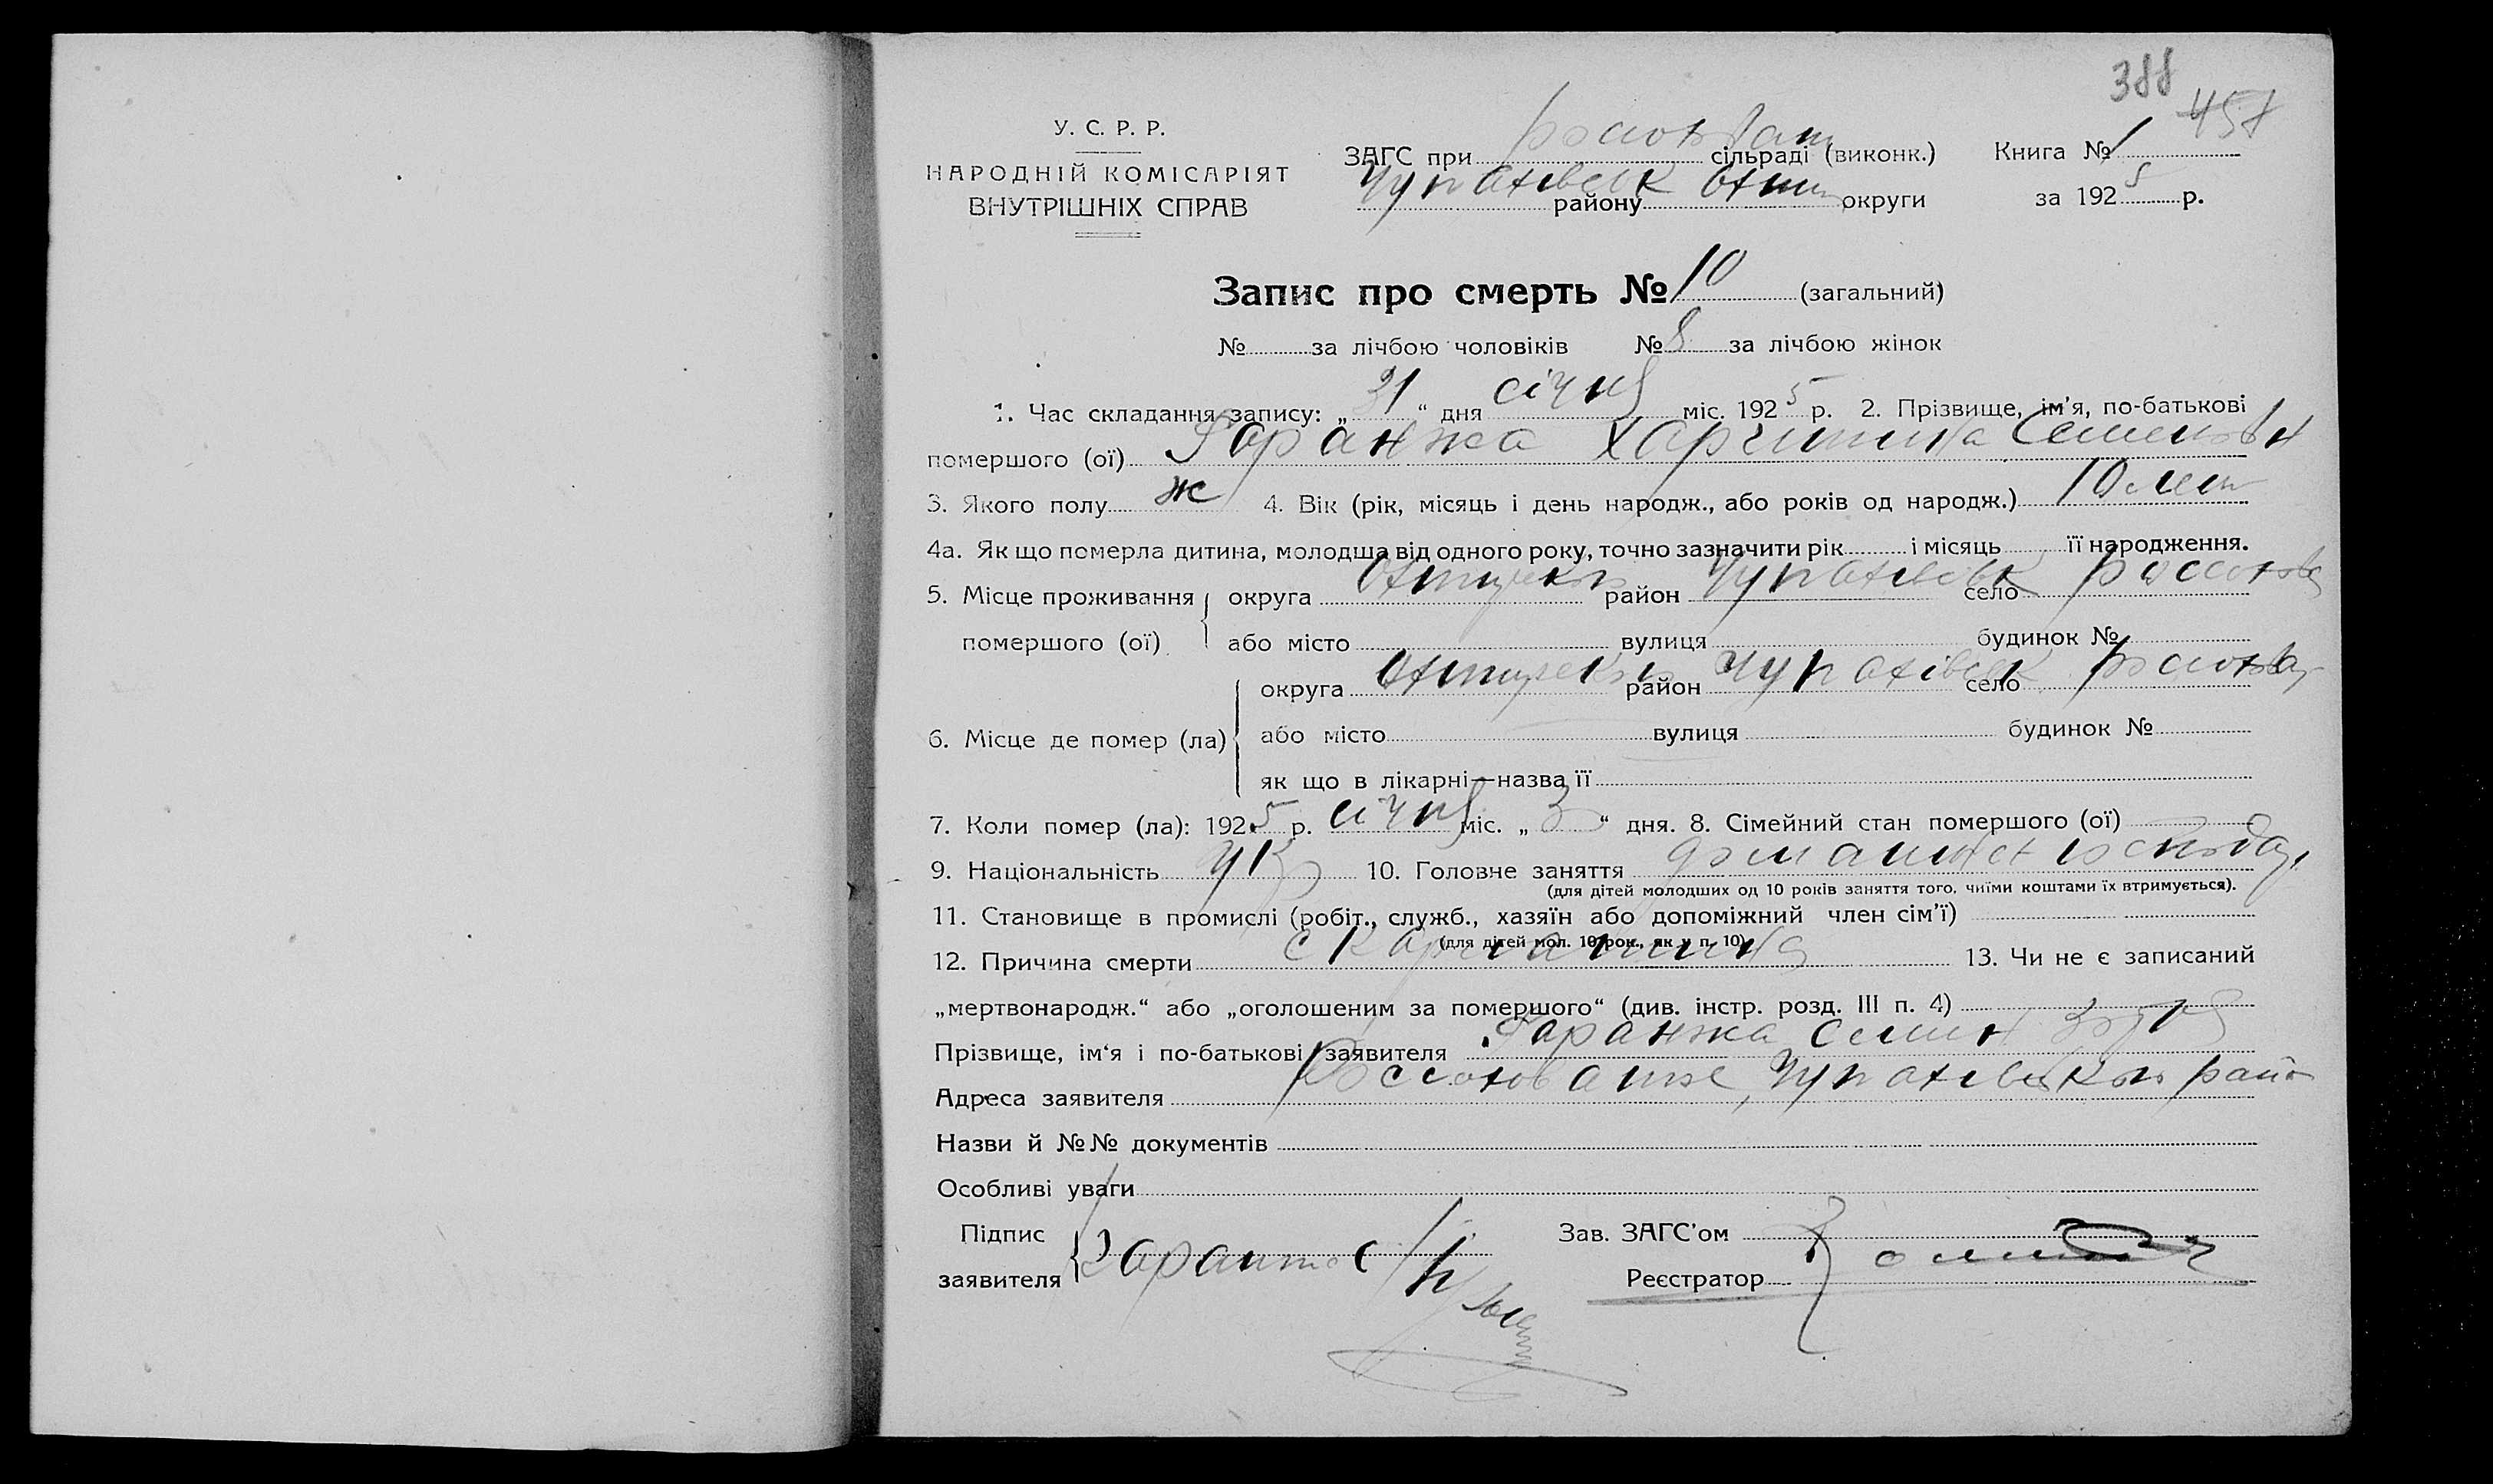 388
457
У. С. Р. Р.
НАРОДНІЙ КОМІСАРІЯТ
ВНУТРІШНІХ СПРАВ
ЗАГС при сільраді (виконк.)
Чупахівськ району Охт округи
Книга № 1
за 1925 р.
Запис про смерть № 10 (загальний)
№ за лічбою чоловіків № 8 за лічбою жінок
1. Час складання запису: „31“ дня січня міс. 1925 р. 2. Прізвище, ім'я, по-батькові
помершого (ої) Гаранжа Харитина Семеновн
3. Якого полу ж 4. Вік (рік, місяць і день народж., або років од народж.) 10 лет
4а. Як що померла дитина, молодша від одного року, точно зазначити рік і місяць її народження.
5. Місце проживання помершого (ої) округа район Чупахівськ село
або місто вулиця будинок №
6. Місце де помер (ла) округа район Чупахівськ село
або місто вулиця будинок №
як що в лікарні—назва її
7. Коли помер (ла): 1925 р. січня міс. „3“ дня. 8. Сімейний стан помершого (ої)
9. Національність укр 10. Головне заняття
(для дітей молодших од 10 років заняття того, чиїми коштами їх втримується).
11. Становище в промислі (робіт., служб., хазяїн або допоміжний член сім'ї)
(для дітей мол. 10 рок., як у п. 10)
12. Причина смерти скарлатина 13. Чи не є записаний
„мертвонародж.“ або „оголошеним за помершого“ (див. інстр. розд. III п. 4)
Прізвище, ім'я і по-батькові заявителя Гаранжа Семен
Адреса заявителя Чупахівського район
Назви й №№ документів
Особливі уваги
Підпис
заявителя
Зав. ЗАГС'ом
Реєстратор